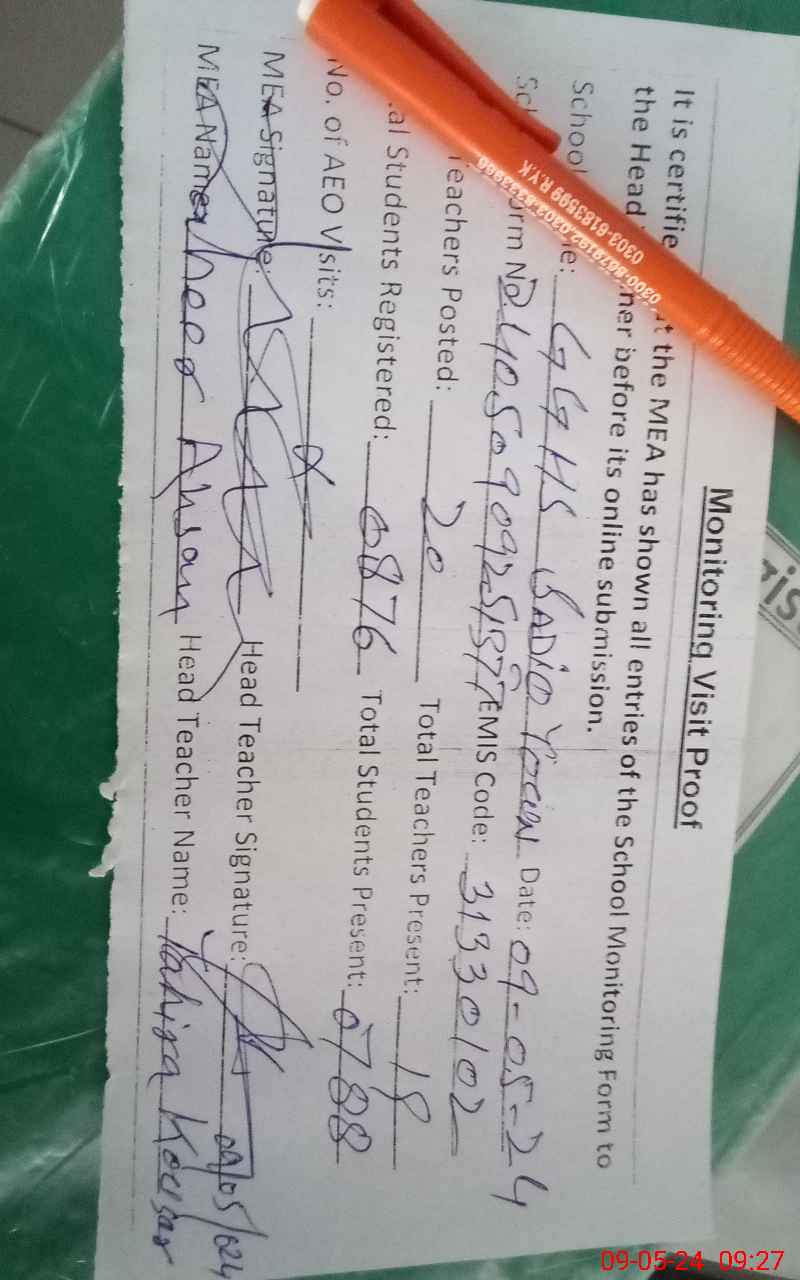 Monitoring Visit Proof
It is certifie t the MEA has shown all entries of the School Monitoring Form to
the Head ner before its online submission.
School e: GGHS SADIQ Date: 09-05-24
Sc orm No EMIS Code: 31330102
Teachers Posted: 20 Total Teachers Present: 18
al Students Registered: 0876 Total Students Present: 0788
No. of AEO Visits:
MEA Signature: Head Teacher Signature: 09/05/024
MEA Name: Ahsan Head Teacher Name: Kousar
0303-6183599 R.Y.K
09-05-24 09:27